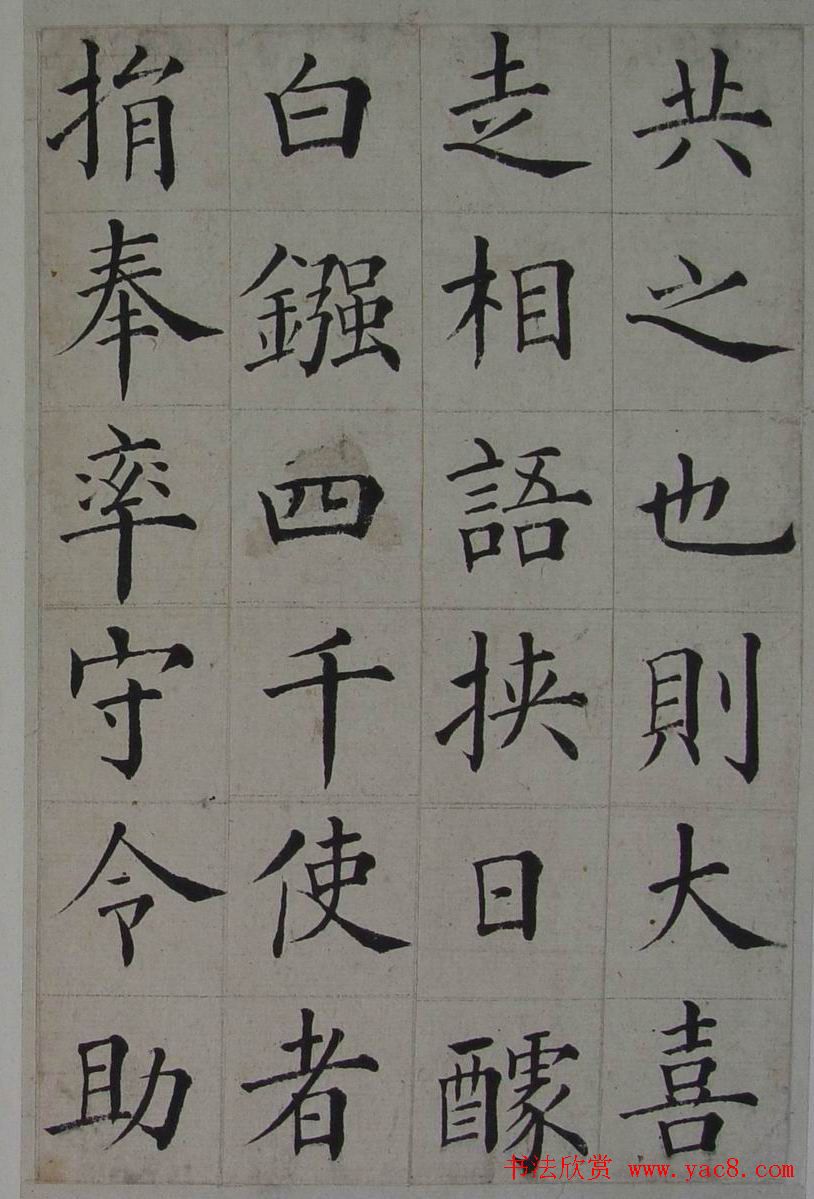 共之也則大喜
走相語挟日醵
白鏹四千使者
捐奉率守令助
书法欣赏 www.yac8.com